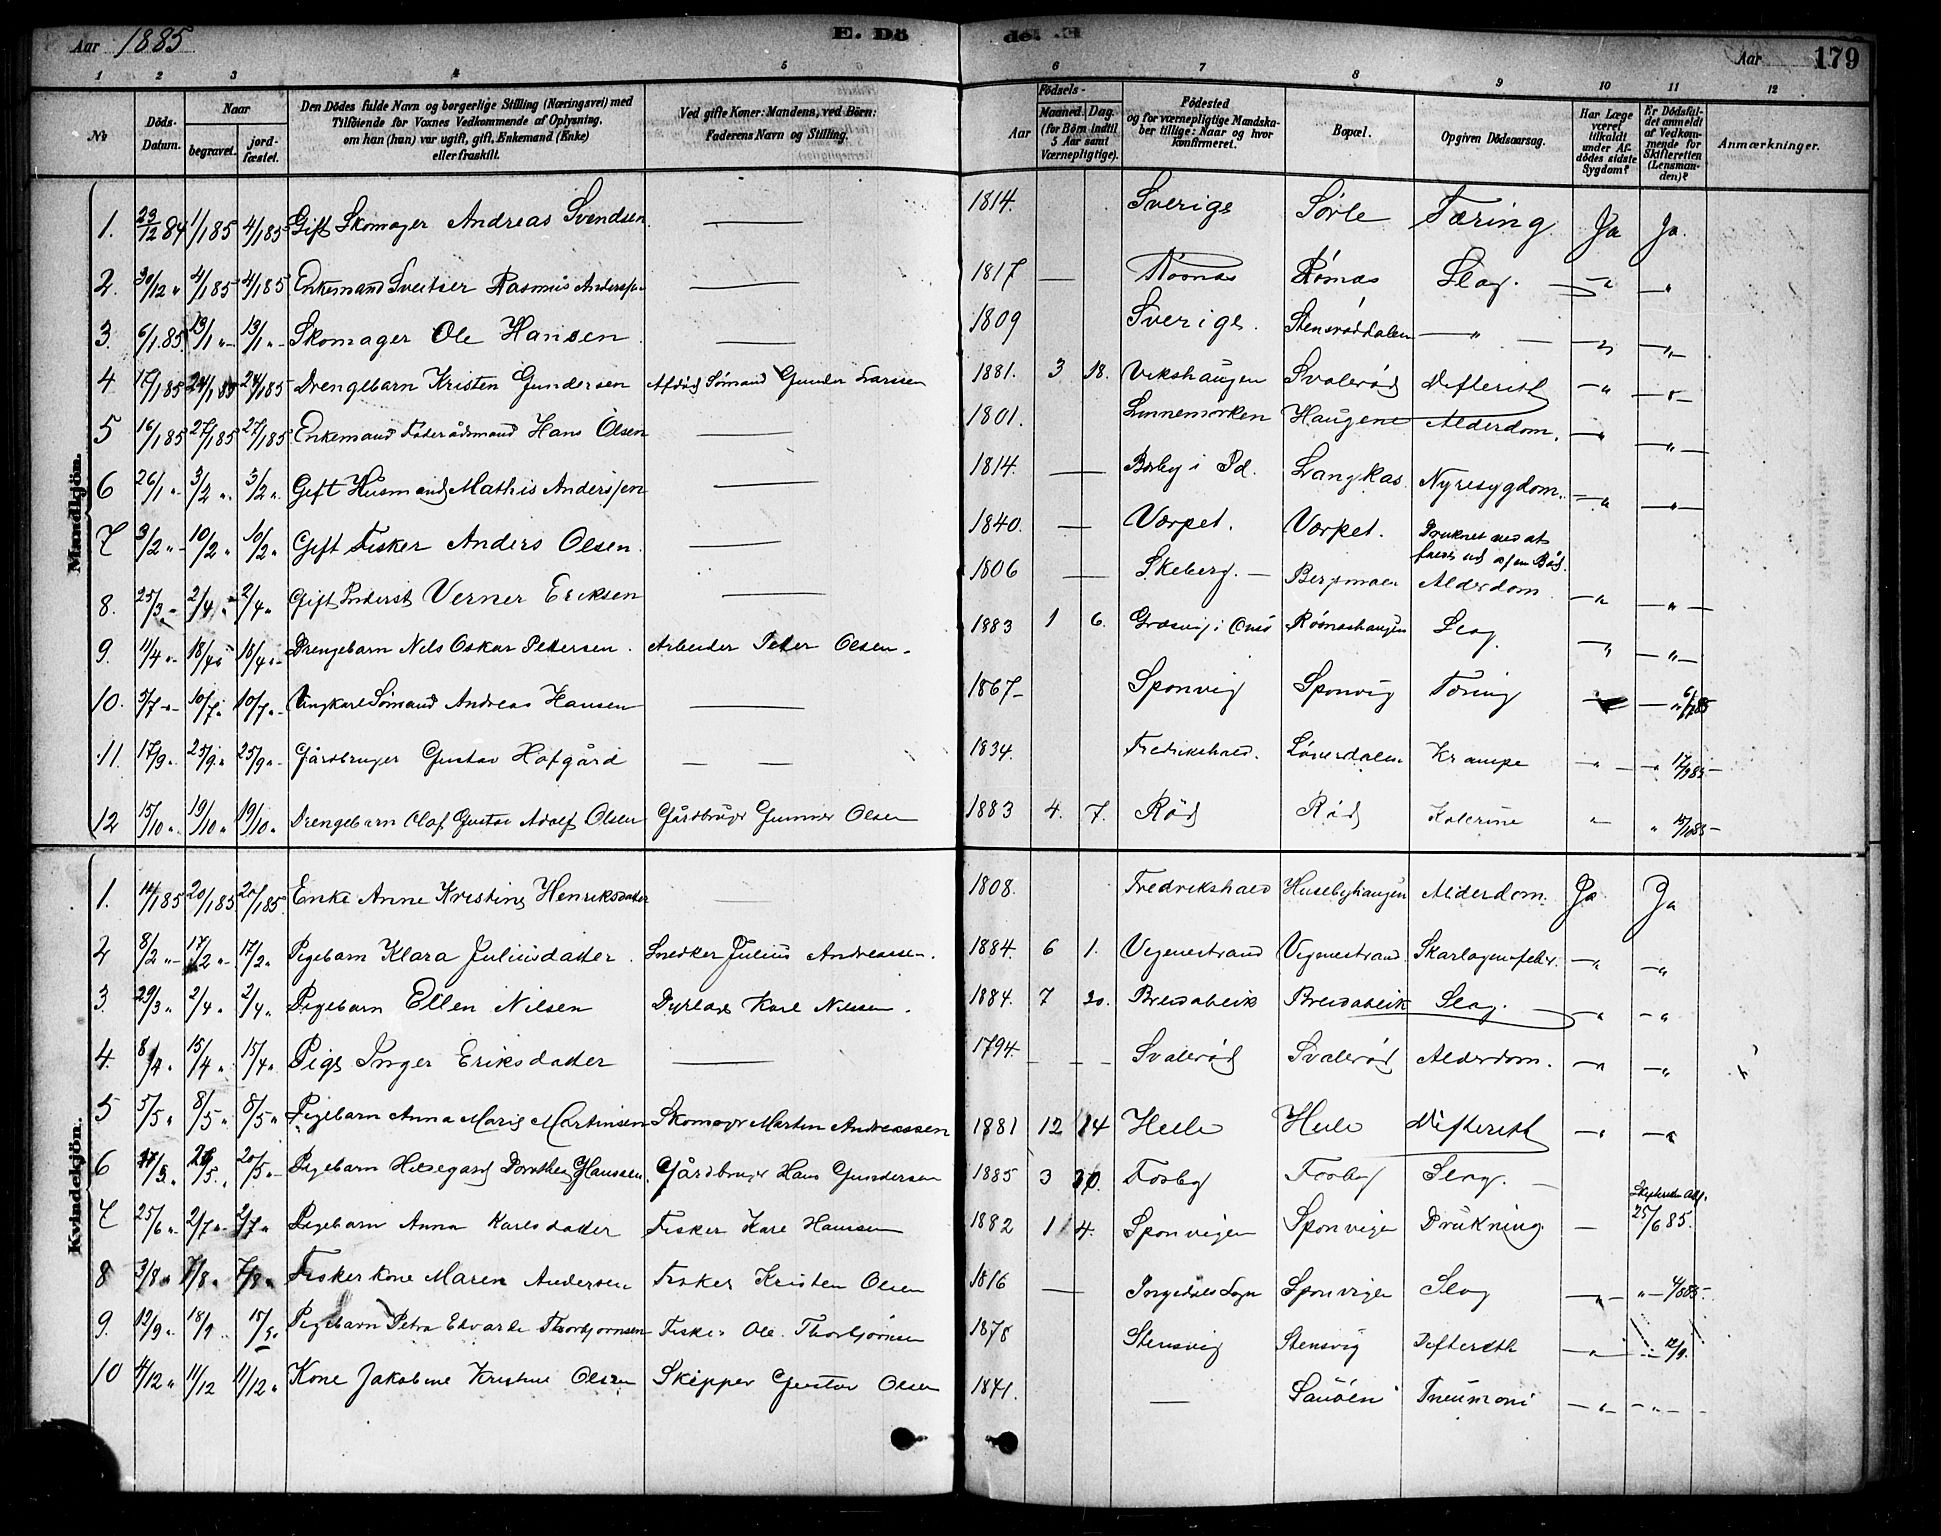 Aar 1885 E. Dö de. .E Aar 179
1 2 3 4 5 6 7 8 9 10 11 12
№ Döds-Datum. Naar begravet. jordfæstet. Den Dödes fulde Navn og borgerlige Stilling (Næringsvei) med Tilföiende for Voxnes Vedkommende af Oplysning, om han (hun) var ugift, gift, Enkemand (Enke) eller fraskilt. Ved gifte Koner: Mandens, ved Börn: Faderens Navn og Stilling. Aar Födsels- Maaned. Dag. (for Börn indtil 5 Aar samt Værnepligtige). Födested og for værnepligtige Mandskaber tillige: Naar og hvor konfirmeret. Bopæl. Opgiven Dödsaarsag. Har Læge været tilkaldt under Afdödes sidste Sygdom? Er Dödsfaldet anmeldt af Vedkommende for Skifteretten (Lensmanden)? Anmærkninger.
Mandkjön.
1. 29/12 84 1/1 85 4/1 85 Gift Skomager Andreas Svendsen — 1814. Sverige Sörle Tæring Ja Ja.
2. 30/12 " 4/1 85 4/1 85 Enkemand Sveitser Rasmus Anderssen — 1817 — Römnæs Römnæs Slag. — " — "
3. 6/1 85. 13/1 " 13/1 " Skomager Ole Hansen — 1809 Sverige. Stensröddalen — " — — " — "
4 17/1 85 24/1 85 24/1 85 Drengebarn Kristen Gundersen Afdöd Sömand Gunder Larssen 1881. 3 18. Vikshaugen Svaleröd Difterit — " — " —
5 16/1 85 27/1 85 27/1 85 Enkemand Föderådsmand Hans Olsen — 1801. Linnemörken Haugene Alderdom. — " — " —
6 26/1 " 3/2 " 3/2 " Gift Husmand Mathis Anderssen — 1814. — Borby i Id. Langkas Nyresygdom. — " — " —
7 3/2 " 10/2 " 10/2 " Gift Fisker Anders Olsen — 1840. — Vorpet. Vorpet. Druknet ved at falde ud af en Båd.
8. 25/3 " 2/4 " 2/4 " Gift Inderst Verner Eriksen — 1806 — Skeberg. — Bergmoen Alderdom — " — " —
9. 11/4 " 18/4 " 18/4 " Drengebarn Nils Oskar Petersen. Arbeider Peter Olsen. 1883 1 6. Græsvig i Onsö Römneshaugen Slag. — " — " —
10. 3/7 " 10/7 " 10/7 " Ungkarl Sömand Andreas Hansen — 1867 — Sponvig Sponvig Tæring — " 6/7 85
11. 17/9 " 25/9 " 25/9 " Gårdbruger Gustav Hofgård — — 1834. Fredrikshald. Krampe — " — " 17/9 85 —
12 15/10 " 19/10 " 19/10 " Drengebarn Olaf Gustav Adolf Olsen Gårdbruger Gunner Olsen 1883 4. 7. Röd Röd Kolerine " — " 15/10 85 —
Kvindekjön.
1. 14/1 85 20/1 85 20/1 85. Enke Anne Kristine Henriksdatter — 1808. Fredrikshald Husebyhaugen Alderdom. Ja Ja
2 8/2 " 17/2 " 17/2 " Pigebarn Klara Juliusdatter. Snedker Julius Andreassen. 1884. 6 1. Vegenestrand Vegenestrand Skarlagensfeber. — " — "
3. 29/3 " 2/4 " 2/4 " Pigebarn Ellen Nilsen Dyrlæge Karl Nilssen. 1884. 7 20. Breidablik Breidablik Slag. — " — "
4. 8/4 " 15/4 " 15/4 " Pige Inger Eriksdatter — 1794. — — Svaleröd Svaleröd Alderdom. — " — "
5 5/5 " 8/5 " 8/5 " Pigebarn Anna Marie Martinsen Skomager Martin Andreassen 1881 12 14 Helle Helle Difterit — " — "
6 Pigebarn Hildegard Dorothea Hanssen. Gårdbruger Hans Gundersen 1885 3 30. Fosby Fosby Slag. —
7 25/6 " 2/7 " 2/7 " Pigebarn Anna Karlsdatter Fisker Karl Hansen 1882 1 4. Sponvigen Sponvigen Drukning. — 25/6 85.
8 3/8 " 7/8 " 7/8 " Fiskerkone Maren Andersen Fisker Kristen Olsen 1816 — Ingedals Sogn Sponvigen Slag — " — " — 4/8 85 —
9. 12/9 " 18/9 Pigebarn Petra Edvarde Thorbjörnsen Fisker Ole Thorbjörnsen 1878 Stensvig Stensvig Difterith — " — 12/9.
10 4/12 " 11/12 11/12 " Kone Jakobine Kristine Olsen Skipper Gustav Olsen 1841. — Sauöen Pneumoni — " — — " — —